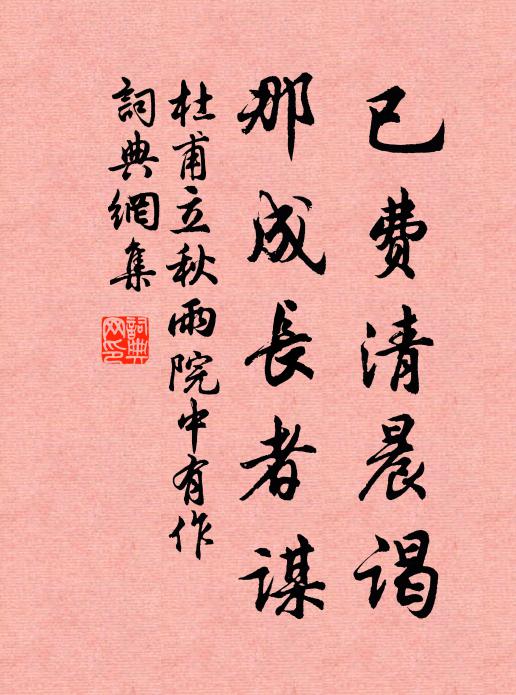 已费清晨谒
那成長者謀
杜甫立秋雨院中有作
詞典網集
詞典網印